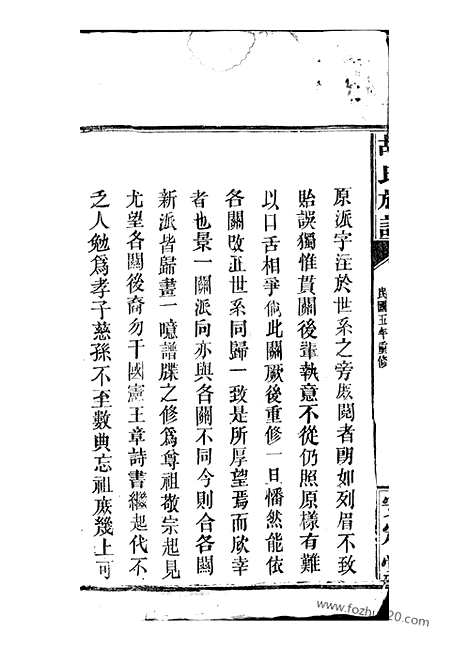 胡氏族譜
民國五年重修
原派字注於世系之旁庶閱者朗如列眉不致
貽誤獨惟貫關後輩執意不從仍照原樣有難
以口舌相爭倘此關厥後重修一旦憣然能依
各關改正世系同歸一致是所厚望焉而欣幸
者也景一關派向亦與各關不同今則合各關
新派皆歸畫一噫譜牒之修爲尊祖敬宗起見
尤望各關後裔勿干國憲王章詩書繼起代不
乏人勉爲孝子慈孫不至數典忘祖庶幾上可
www.fozhu920.com